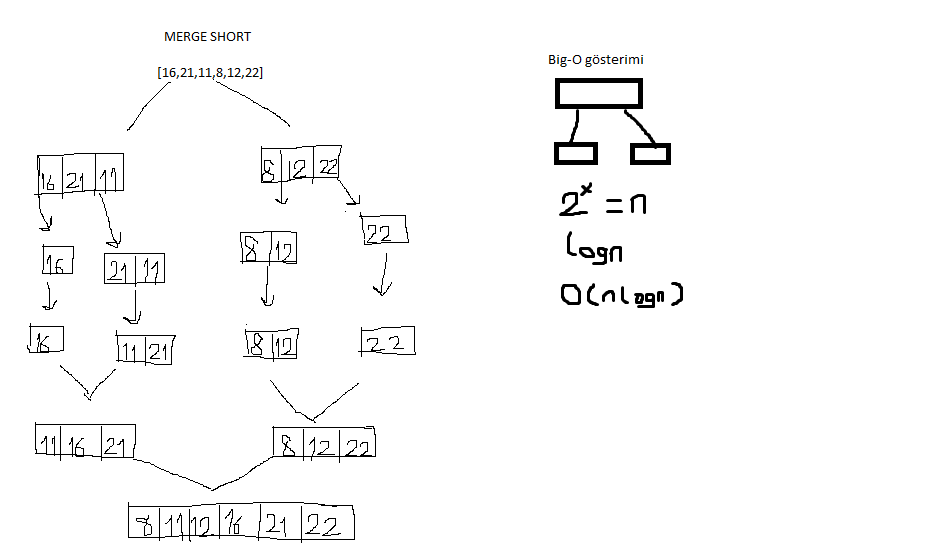 MERGE SHORT
[16,21,11,8,12,22]
16 21 11
8 12 22
16
21 11
8 12
22
16
11 21
8 12
22
11 16 21
8 12 22
8 11 12 16 21 22
Big-O gösterimi
2ˣ = n
logn
O(nlogn)